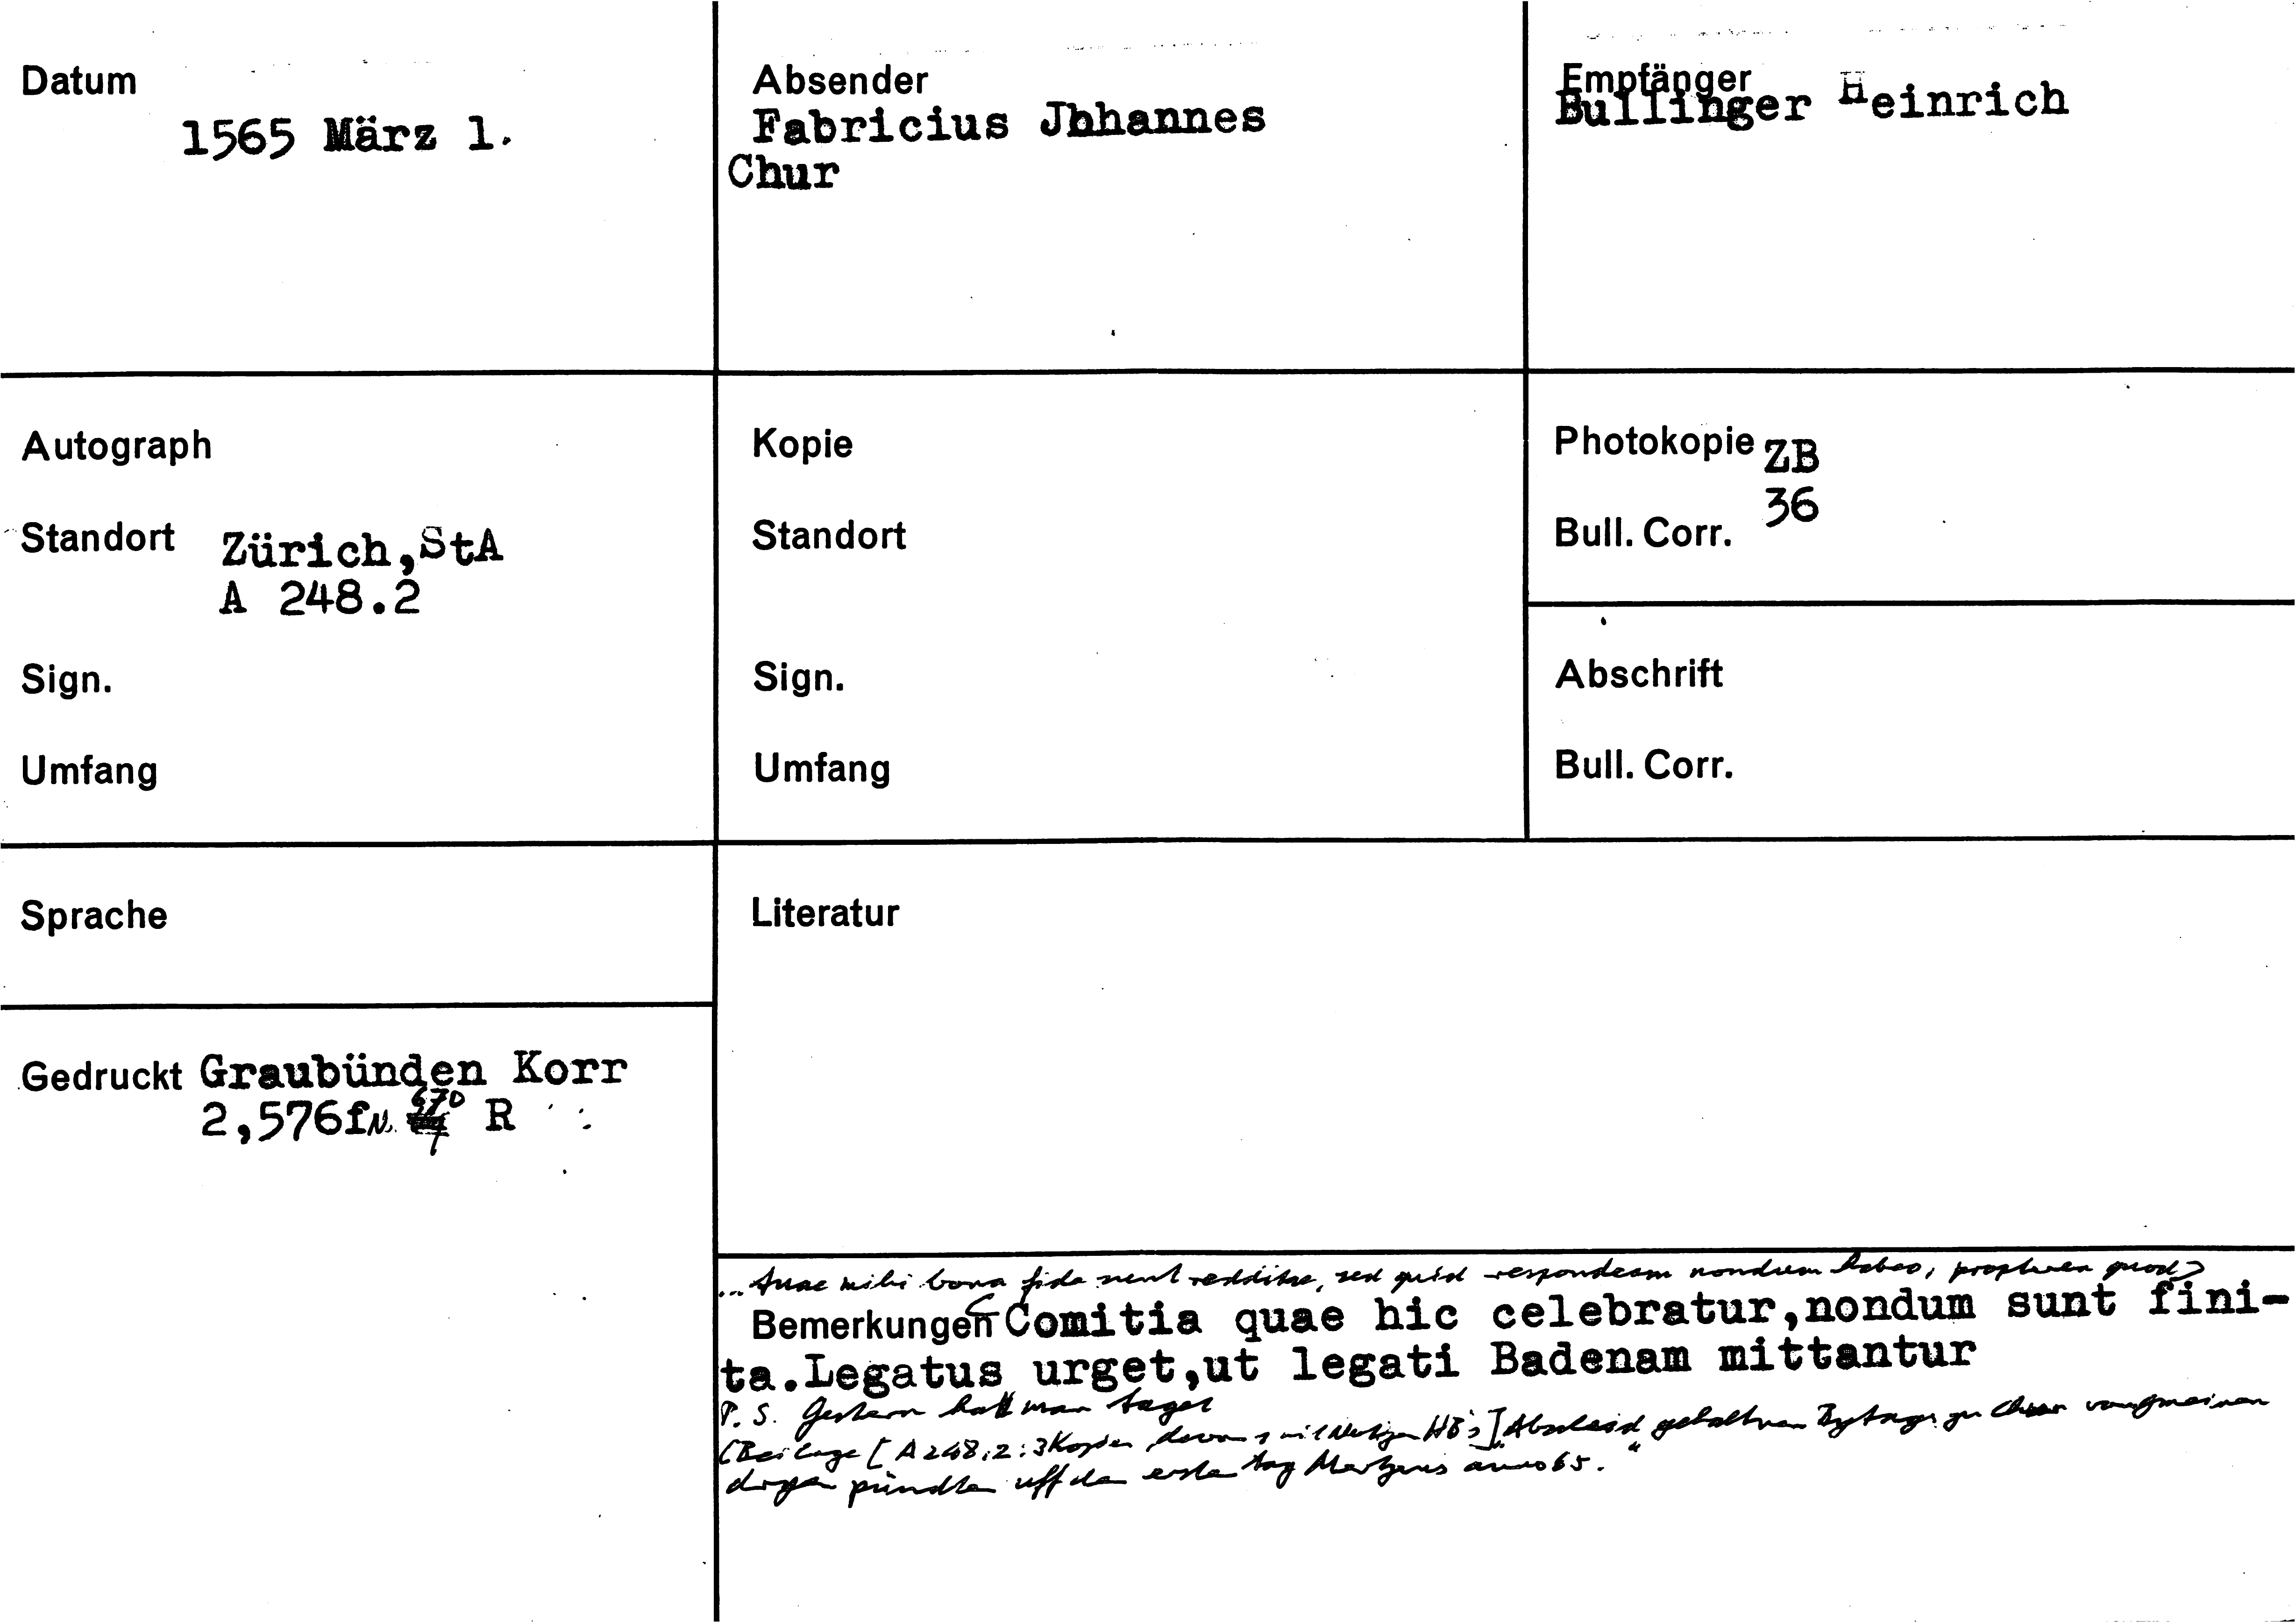 Datum
1565 März 1.
Absender
Fabricius Jhhannes
Chur
Empfänger
Bullinger Heinrich
Autograph
Standort Zürich,StA
A 248.2
Sign.
Umfang
Kopie
Standort
Sign.
Umfang
Photokopie ZB
Bull. Corr. 36
Abschrift
Bull. Corr.
Sprache
Gedruckt Graubünden Korr
2,576f N. 670 R
Literatur
... tuae mihi bona fide sunt redditae, sed quid respondeam nondum habeo, propterea quod
Bemerkungen Comitia quae hic celebratur,nondum sunt fini-
ta.Legatus urget,ut legati Badenam mittantur
P. S. Gestern hatt man taget
(Beilage [A 248,2: 3 Kopien, davon 1 mit Notizen HB's] "Abscheid gehaltnen Bytags zu Chur von gmeinen
dryen pündten uff den ersten tag Martzens anno 65."